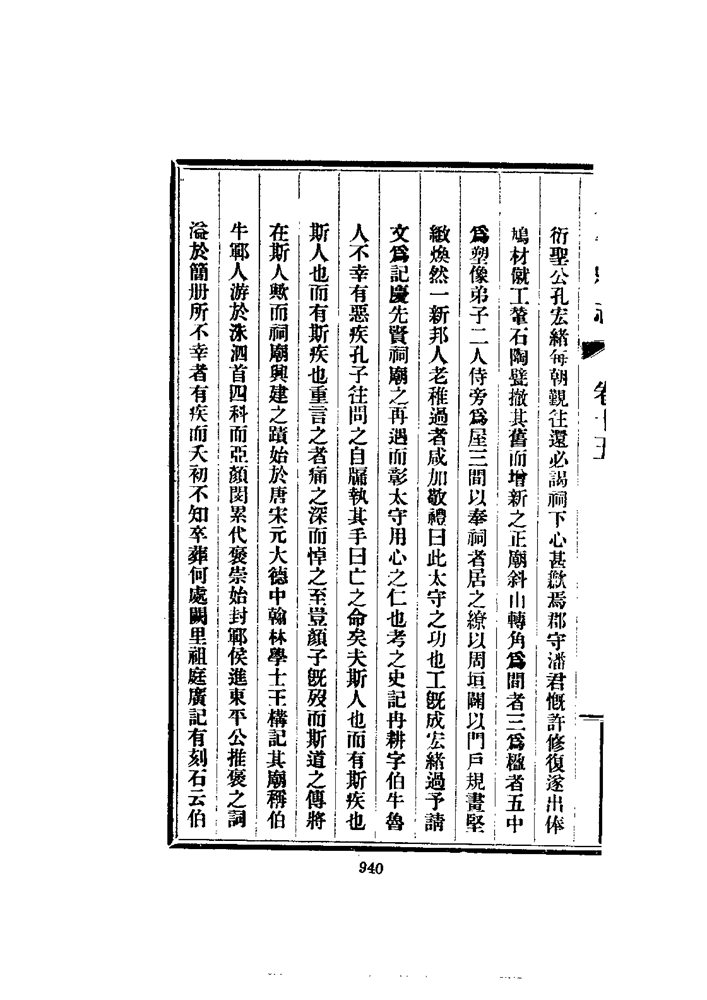 卷十五
衍聖公孔宏緒每朝覲往還必謁祠下心甚歉焉郡守潘君慨許修復遂出俸
鳩材僦工輦石陶甓撤其舊而增新之正廟斜山轉角爲間者三爲楹者五中
爲塑像弟子二人侍旁爲屋三間以奉祠者居之繚以周垣闢以門戶規畫堅
緻煥然一新邦人老稚過者咸加敬禮曰此太守之功也工旣成宏緒過予請
文爲記慶先賢祠廟之再遇而彰太守用心之仁也考之史記冉耕字伯牛魯
人不幸有惡疾孔子往問之自牖執其手曰亡之命矣夫斯人也而有斯疾也
斯人也而有斯疾也重言之者痛之深而悼之至豈顏子旣歿而斯道之傳將
在斯人歟而祠廟興建之蹟始於唐宋元大德中翰林學士王構記其廟稱伯
牛鄆人游於洙泗首四科而亞顏閔累代褒崇始封鄆侯進東平公推褒之詞
溢於簡册所不幸者有疾而夭初不知卒葬何處闕里祖庭廣記有刻石云伯
940